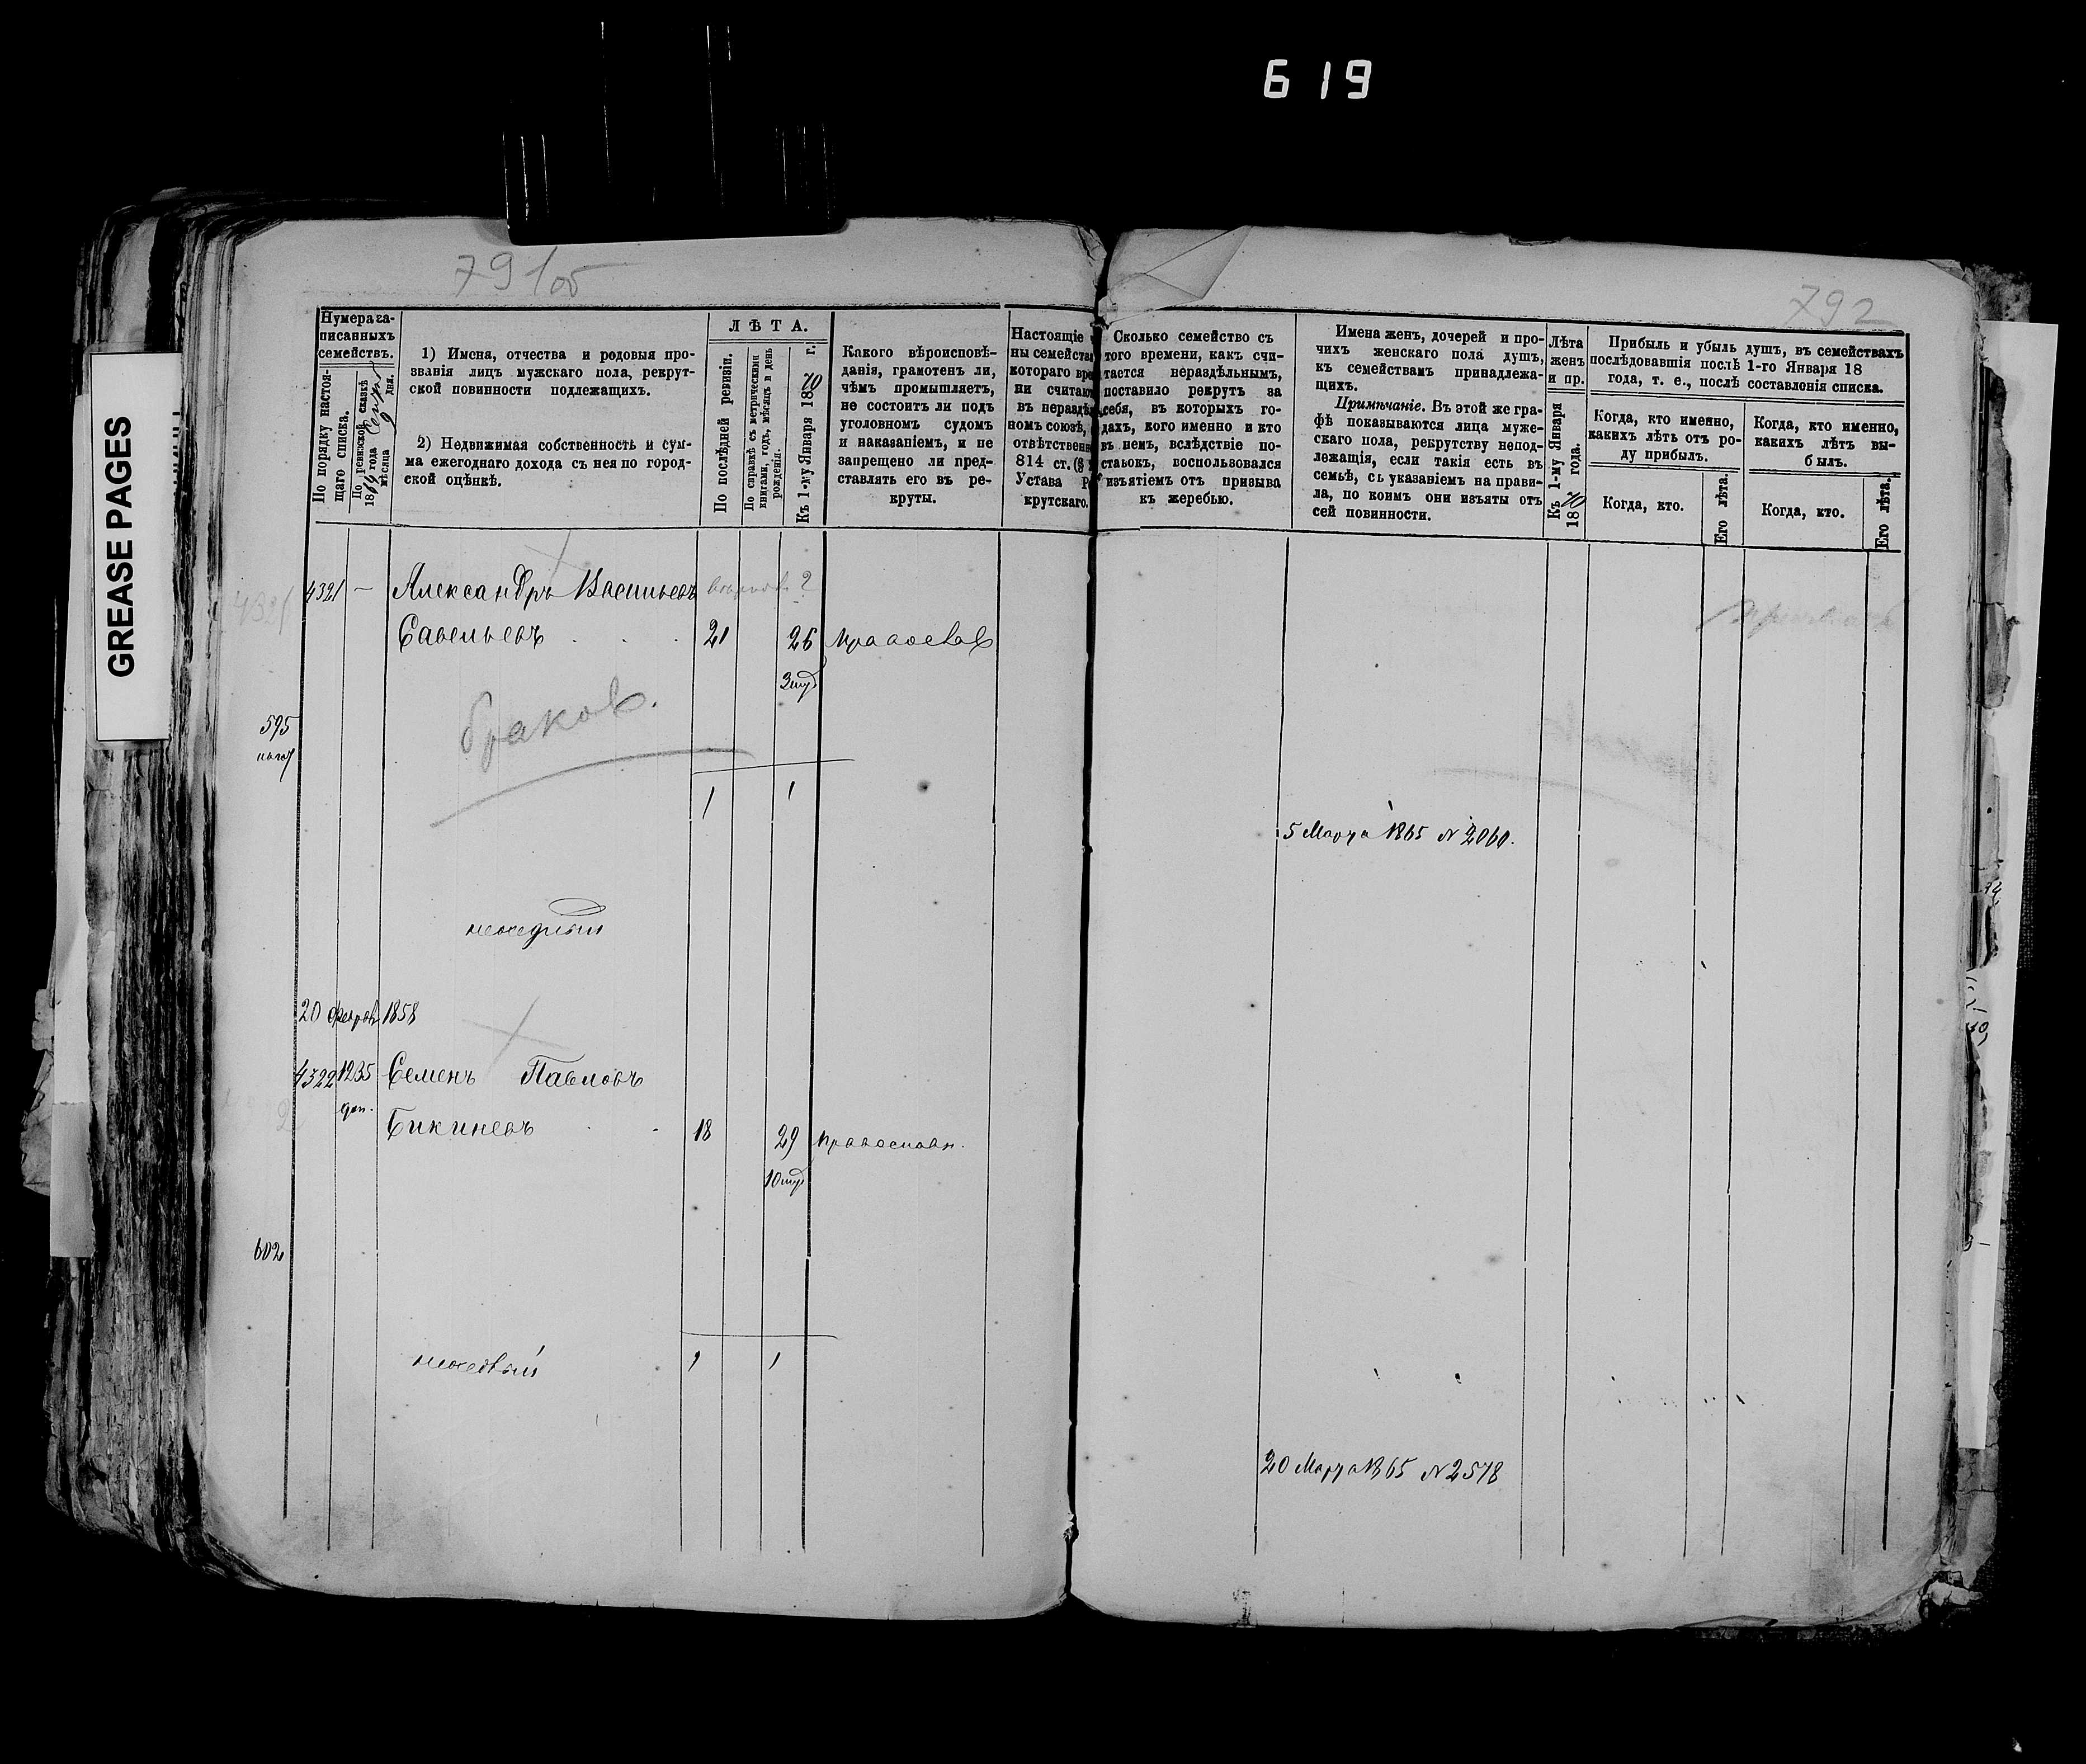 619
GREASE PAGES
791об
792
Нумера за-
писанныхъ
семействъ.
По порядку настоя-
щаго списка.
По ревизской сказкѣ
18 года
мѣсяца 9 дня.
1) Имена, отчества и родовыя про-
званія лицъ мужскаго пола, рекрут-
ской повинности подлежащихъ.
2) Недвижимая собственность и сум-
ма ежегоднаго дохода съ нея по город-
ской оцѣнкѣ.
ЛѢТА.
По послѣдней ревизіи.
По справкѣ съ метрическими
книгами, годъ, мѣсяцъ и день
рожденія.
Къ 1-му Января 1870 г.
Какого вѣроисповѣ-
данія, грамотенъ ли,
чѣмъ промышляетъ,
не состоитъ ли подъ
уголовномъ судомъ
и наказаніемъ, и не
запрещено ли пред-
ставлять его въ ре-
круты.
Настоящіе
ны семейства
котораго вре
ни считаю
въ нераздѣ
номъ союзѣ,
отвѣтственн
814 ст. (§
Устава Ре
крутскаго.
Сколько семейство съ
того времени, какъ счи-
тается нераздѣльнымъ,
поставило рекрутъ за
себя, въ которыхъ го-
дахъ, кого именно и кто
въ немъ, вслѣдствіе по-
ставокъ, воспользовался
изъятіемъ отъ призыва
къ жеребью.
Имена женъ, дочерей и про-
чихъ женскаго пола душъ,
къ семействамъ принадлежа-
щихъ.
Примѣчаніе. Въ этой же гра-
фѣ показываются лица муже-
скаго пола, рекрутству непод-
лежащія, если такія есть въ
семьѣ, съ указаніемъ на прави-
ла, по коимъ они изъяты отъ
сей повинности.
Лѣта
женъ
и пр.
Къ 1-му Января
1870 года.
Прибыль и убыль душъ, въ семействахъ
послѣдовавшія послѣ 1-го Января 18
года, т. е., послѣ составленія списка.
Когда, кто именно,
какихъ лѣтъ отъ ро-
ду прибылъ.
Когда, кто именно,
какихъ лѣтъ вы-
былъ.
Когда, кто.
Его лѣта.
Когда, кто.
Его лѣта.
4321 4321 — Александръ Васильевъ
Савельевъ 21 26 Православ
595
браков.
1 1
5 Марта 1865 № 2060.
20 Феврал 1858
4322 1235 Семенъ Павловъ
доп.
Бикиневъ 18 29 Православн.
602
1 1
20 Марта 1865 № 2578